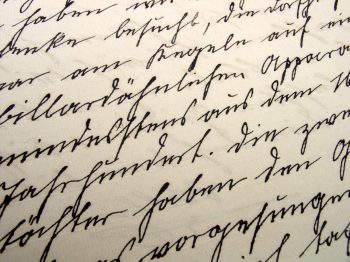 haben wir
besucht, die dorf
war am Kegeln auf ei
billardähnlichen Appara
mindestens aus dem 16
Jahrhundert. die zwe
töchter haben den
vorgesungen